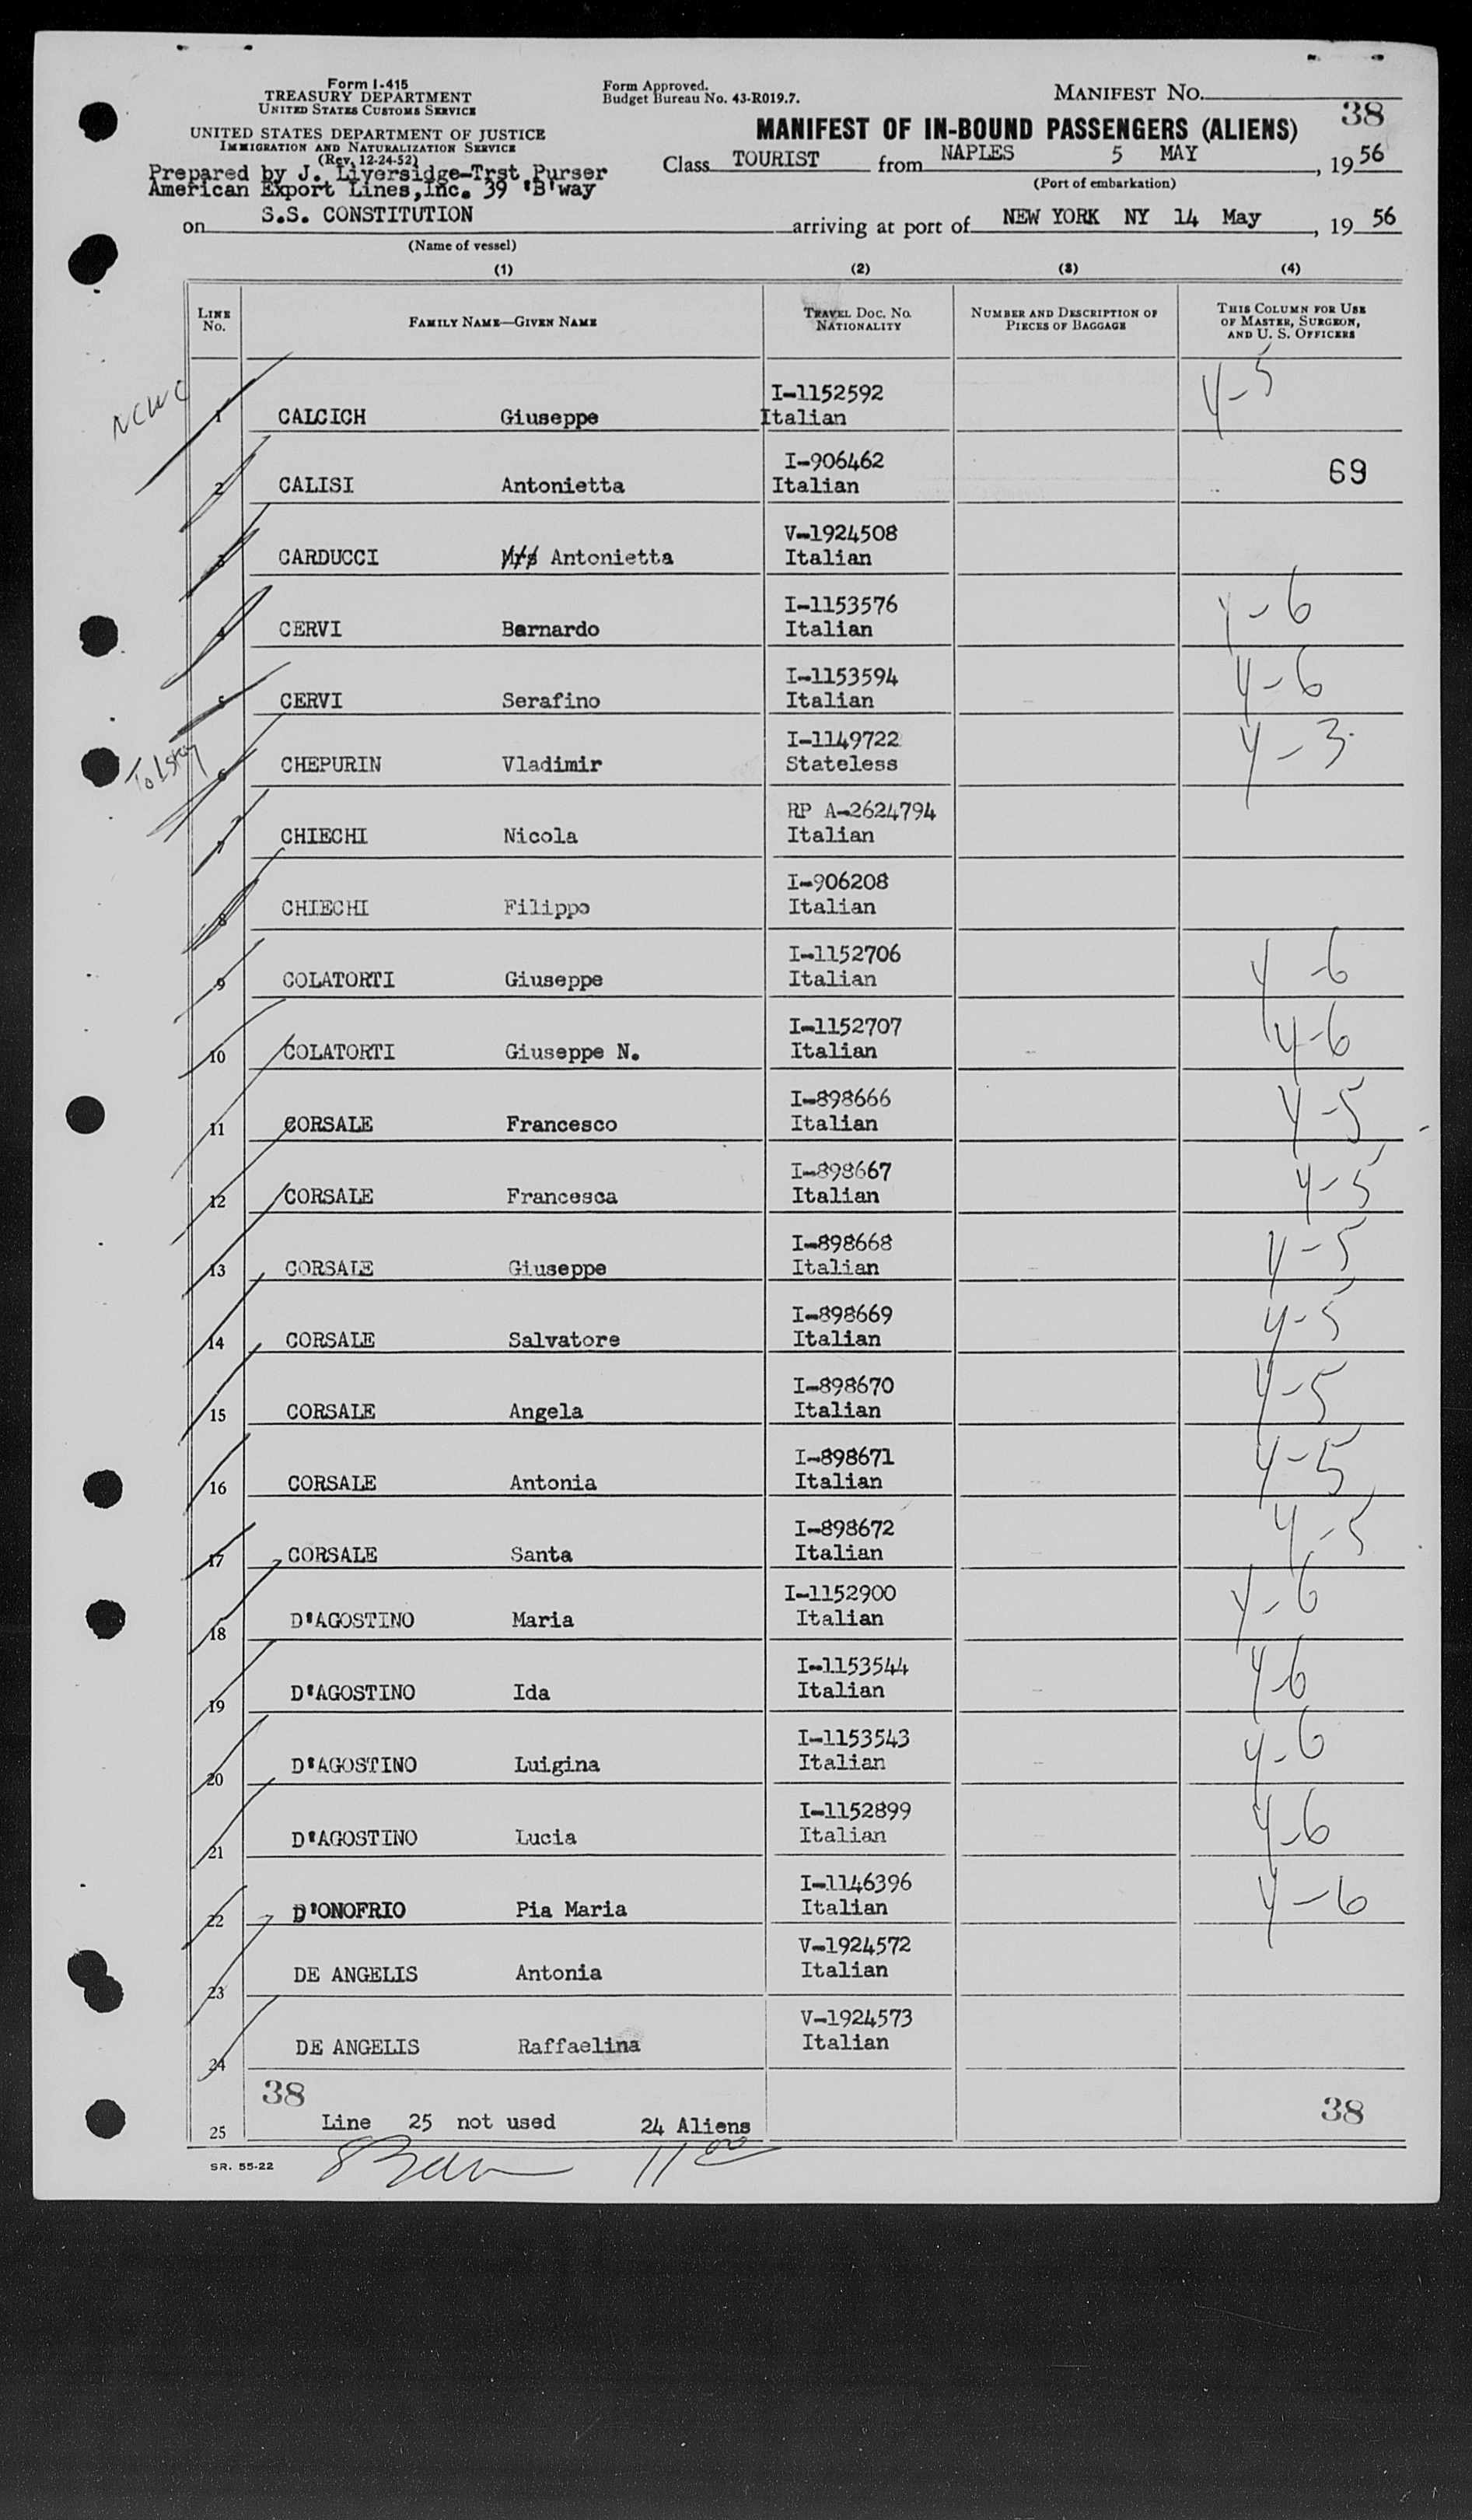 Form I-415
TREASURY DEPARTMENT
UNITED STATES CUSTOMS SERVICE
UNITED STATES DEPARTMENT OF JUSTICE
IMMIGRATION AND NATURALIZATION SERVICE
(Rev. 12-24-52)
Prepared by J. Liversidge-Trst Purser
American Export Lines,Inc. 39 'B'way
Form Approved.
Budget Bureau No. 43-R019.7.
MANIFEST NO.
38
MANIFEST OF IN-BOUND PASSENGERS (ALIENS)
Class TOURIST from NAPLES 5 MAY, 1956
(Port of embarkation)
on S.S. CONSTITUTION arriving at port of NEW YORK NY 14 May, 1956
(Name of vessel)
(1) (2) (3) (4)
LINE NO. FAMILY NAME—GIVEN NAME TRAVEL DOC. NO. NATIONALITY NUMBER AND DESCRIPTION OF PIECES OF BAGGAGE THIS COLUMN FOR USE OF MASTER, SURGEON, AND U. S. OFFICERS
NCWC
I-1152592 4-5
1 CALCICH Giuseppe Italian
I-906462 69
2 CALISI Antonietta Italian
V-1924508
3 CARDUCCI Mrs Antonietta Italian
I-1153576 4-6
4 CERVI Bernardo Italian
I-1153594 4-6
5 CERVI Serafino Italian
Tolstoy
I-1149722 4-3
6 CHEPURIN Vladimir Stateless
RP A-2624794
7 CHIECHI Nicola Italian
I-906208
8 CHIECHI Filippo Italian
I-1152706 4-6
9 COLATORTI Giuseppe Italian
I-1152707 4-6
10 COLATORTI Giuseppe N. Italian
I-898666 4-5
11 CORSALE Francesco Italian
I-898667 4-5
12 CORSALE Francesca Italian
I-898668 4-5
13 CORSALE Giuseppe Italian
I-898669 4-5
14 CORSALE Salvatore Italian
I-898670 4-5
15 CORSALE Angela Italian
I-898671 4-5
16 CORSALE Antonia Italian
I-898672 4-5
17 CORSALE Santa Italian
I-1152900 4-6
18 D'AGOSTINO Maria Italian
I-1153544 4-6
19 D'AGOSTINO Ida Italian
I-1153543 4-6
20 D'AGOSTINO Luigina Italian
I-1152899 4-6
21 D'AGOSTINO Lucia Italian
I-1146396 4-6
22 D'ONOFRIO Pia Maria Italian
V-1924572
23 DE ANGELIS Antonia Italian
V-1924573
24 DE ANGELIS Raffaelina Italian
38 38
25 Line 25 not used 24 Aliens
SR. 55-22 11 00